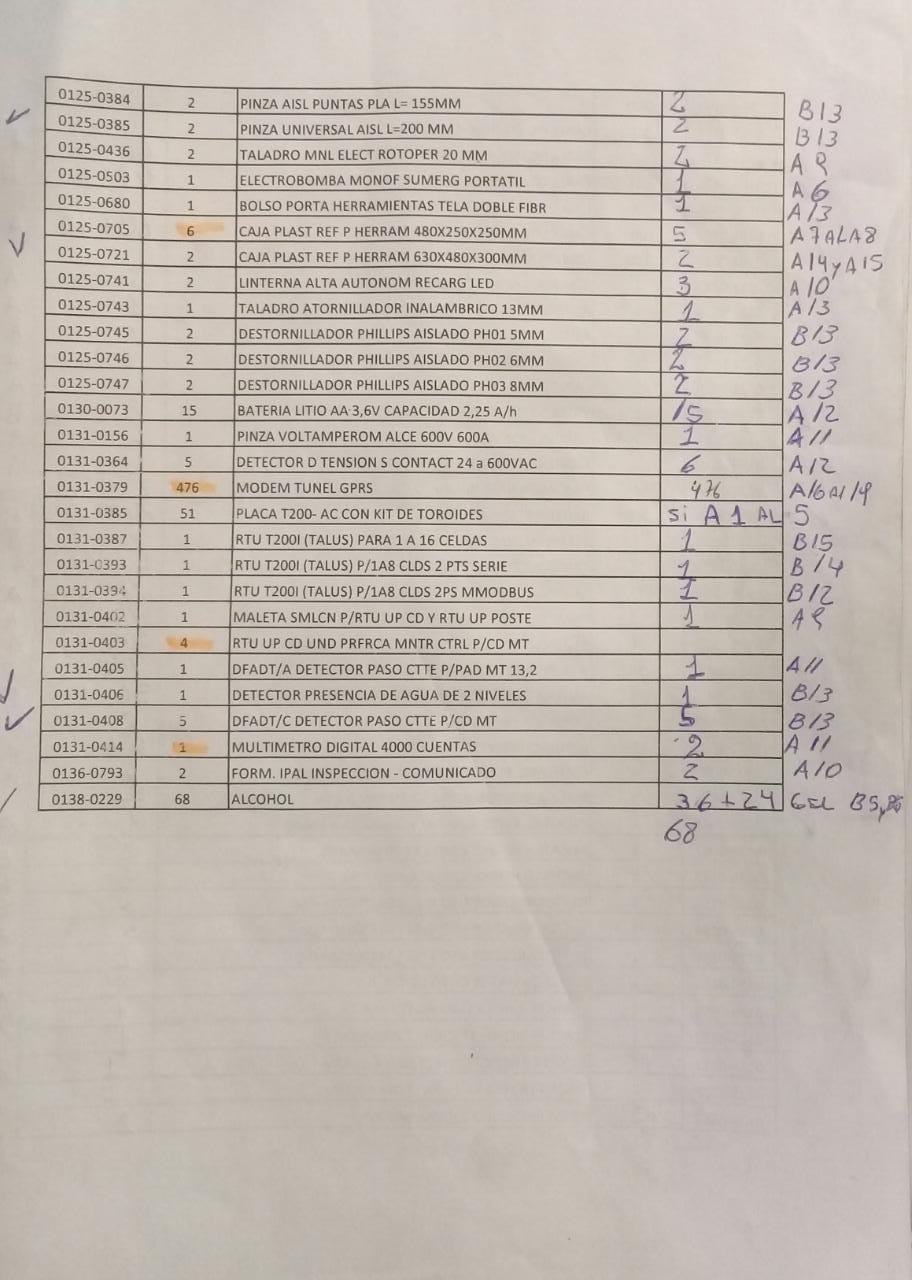 0125-0384 2 PINZA AISL PUNTAS PLA L= 155MM 2 B13
0125-0385 2 PINZA UNIVERSAL AISL L=200 MM 2 B13
0125-0436 2 TALADRO MNL ELECT ROTOPER 20 MM 2 A9
0125-0503 1 ELECTROBOMBA MONOF SUMERG PORTATIL 1 A6
0125-0680 1 BOLSO PORTA HERRAMIENTAS TELA DOBLE FIBR 1 A13
0125-0705 6 CAJA PLAST REF P HERRAM 480X250X250MM 5 A7 AL A8
0125-0721 2 CAJA PLAST REF P HERRAM 630X480X300MM 2 A14 y A15
0125-0741 2 LINTERNA ALTA AUTONOM RECARG LED 3 A10
0125-0743 1 TALADRO ATORNILLADOR INALAMBRICO 13MM 1 A13
0125-0745 2 DESTORNILLADOR PHILLIPS AISLADO PH01 5MM 2 B13
0125-0746 2 DESTORNILLADOR PHILLIPS AISLADO PH02 6MM 2 B13
0125-0747 2 DESTORNILLADOR PHILLIPS AISLADO PH03 8MM 2 B13
0130-0073 15 BATERIA LITIO AA 3,6V CAPACIDAD 2,25 A/h 15 A12
0131-0156 1 PINZA VOLTAMPEROM ALCE 600V 600A 1 A11
0131-0364 5 DETECTOR D TENSION S CONTACT 24 a 600VAC 6 A12
0131-0379 476 MODEM TUNEL GPRS 476 A16 Al 19
0131-0385 51 PLACA T200- AC CON KIT DE TOROIDES Si A 1 AL 5
0131-0387 1 RTU T200I (TALUS) PARA 1 A 16 CELDAS 1 B15
0131-0393 1 RTU T200I (TALUS) P/1A8 CLDS 2 PTS SERIE 1 B14
0131-0394 1 RTU T200I (TALUS) P/1A8 CLDS 2PS MMODBUS 1 B12
0131-0402 1 MALETA SMLCN P/RTU UP CD Y RTU UP POSTE 1 A9
0131-0403 4 RTU UP CD UND PRFRCA MNTR CTRL P/CD MT
0131-0405 1 DFADT/A DETECTOR PASO CTTE P/PAD MT 13,2 1 A11
0131-0406 1 DETECTOR PRESENCIA DE AGUA DE 2 NIVELES 1 B13
0131-0408 5 DFADT/C DETECTOR PASO CTTE P/CD MT 5 B13
0131-0414 1 MULTIMETRO DIGITAL 4000 CUENTAS 2 A11
0136-0793 2 FORM. IPAL INSPECCION - COMUNICADO 2 A10
0138-0229 68 ALCOHOL 36 + 24 GEL B5,
68